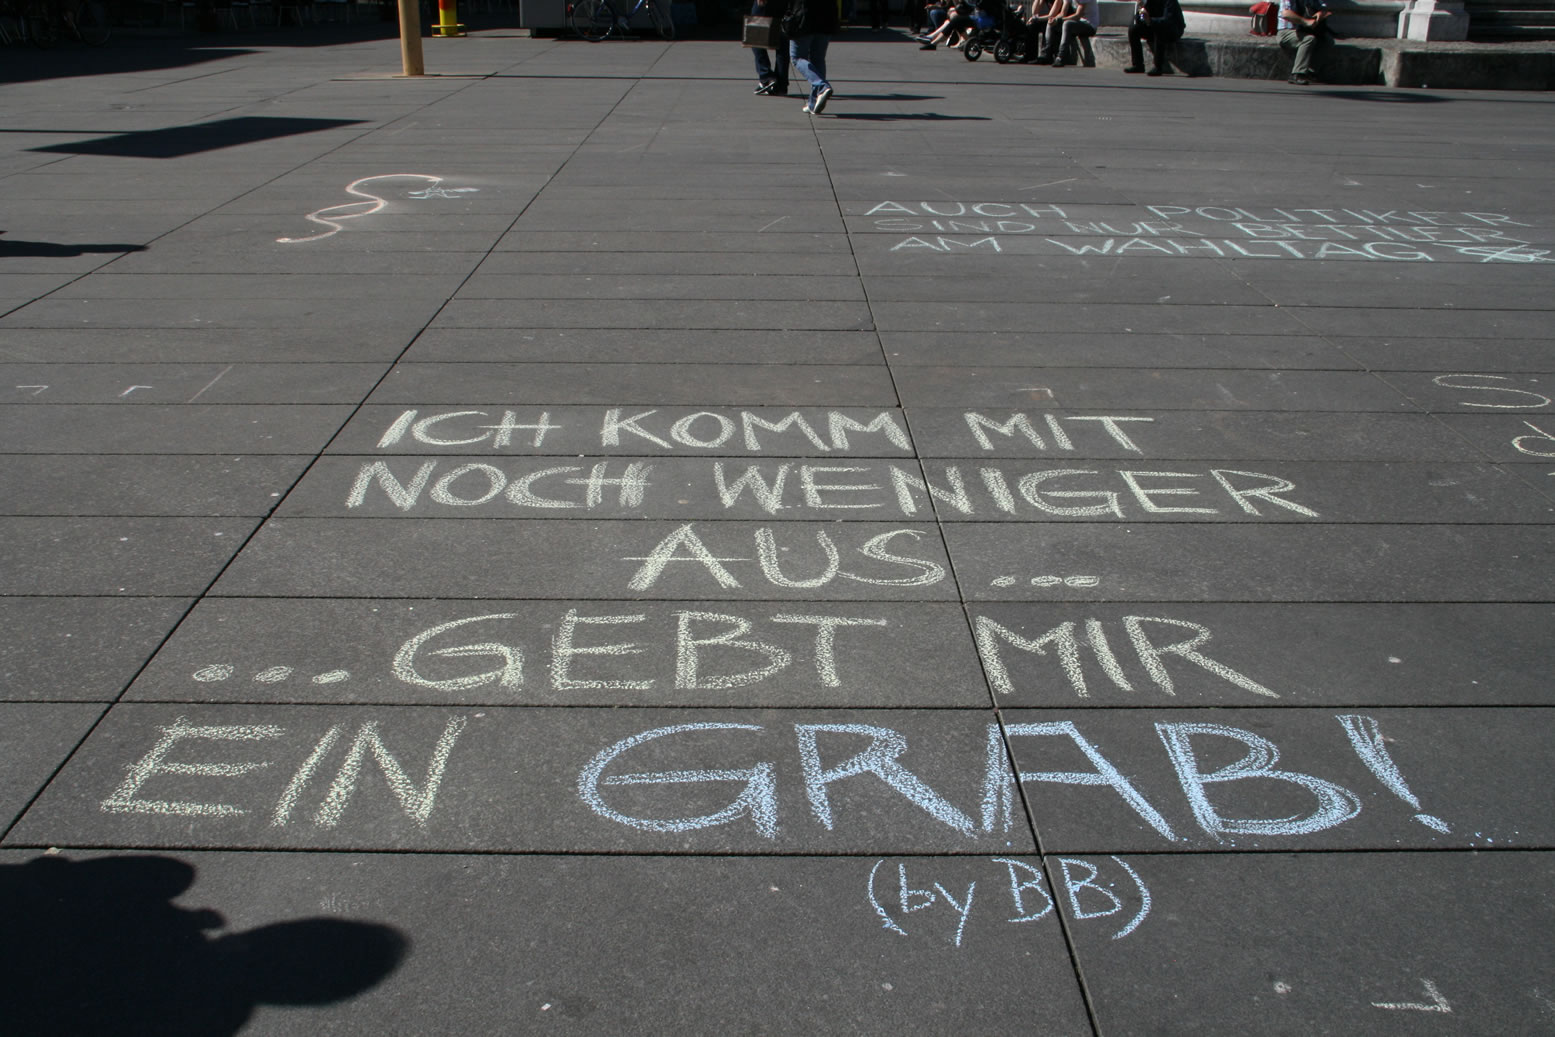 AUCH POLITIKER
SIND NUR BETTLER
AM WAHLTAG
ICH KOMM MIT
NOCH WENIGER
AUS...
...GEBT MIR
EIN GRAB!
(by BB)